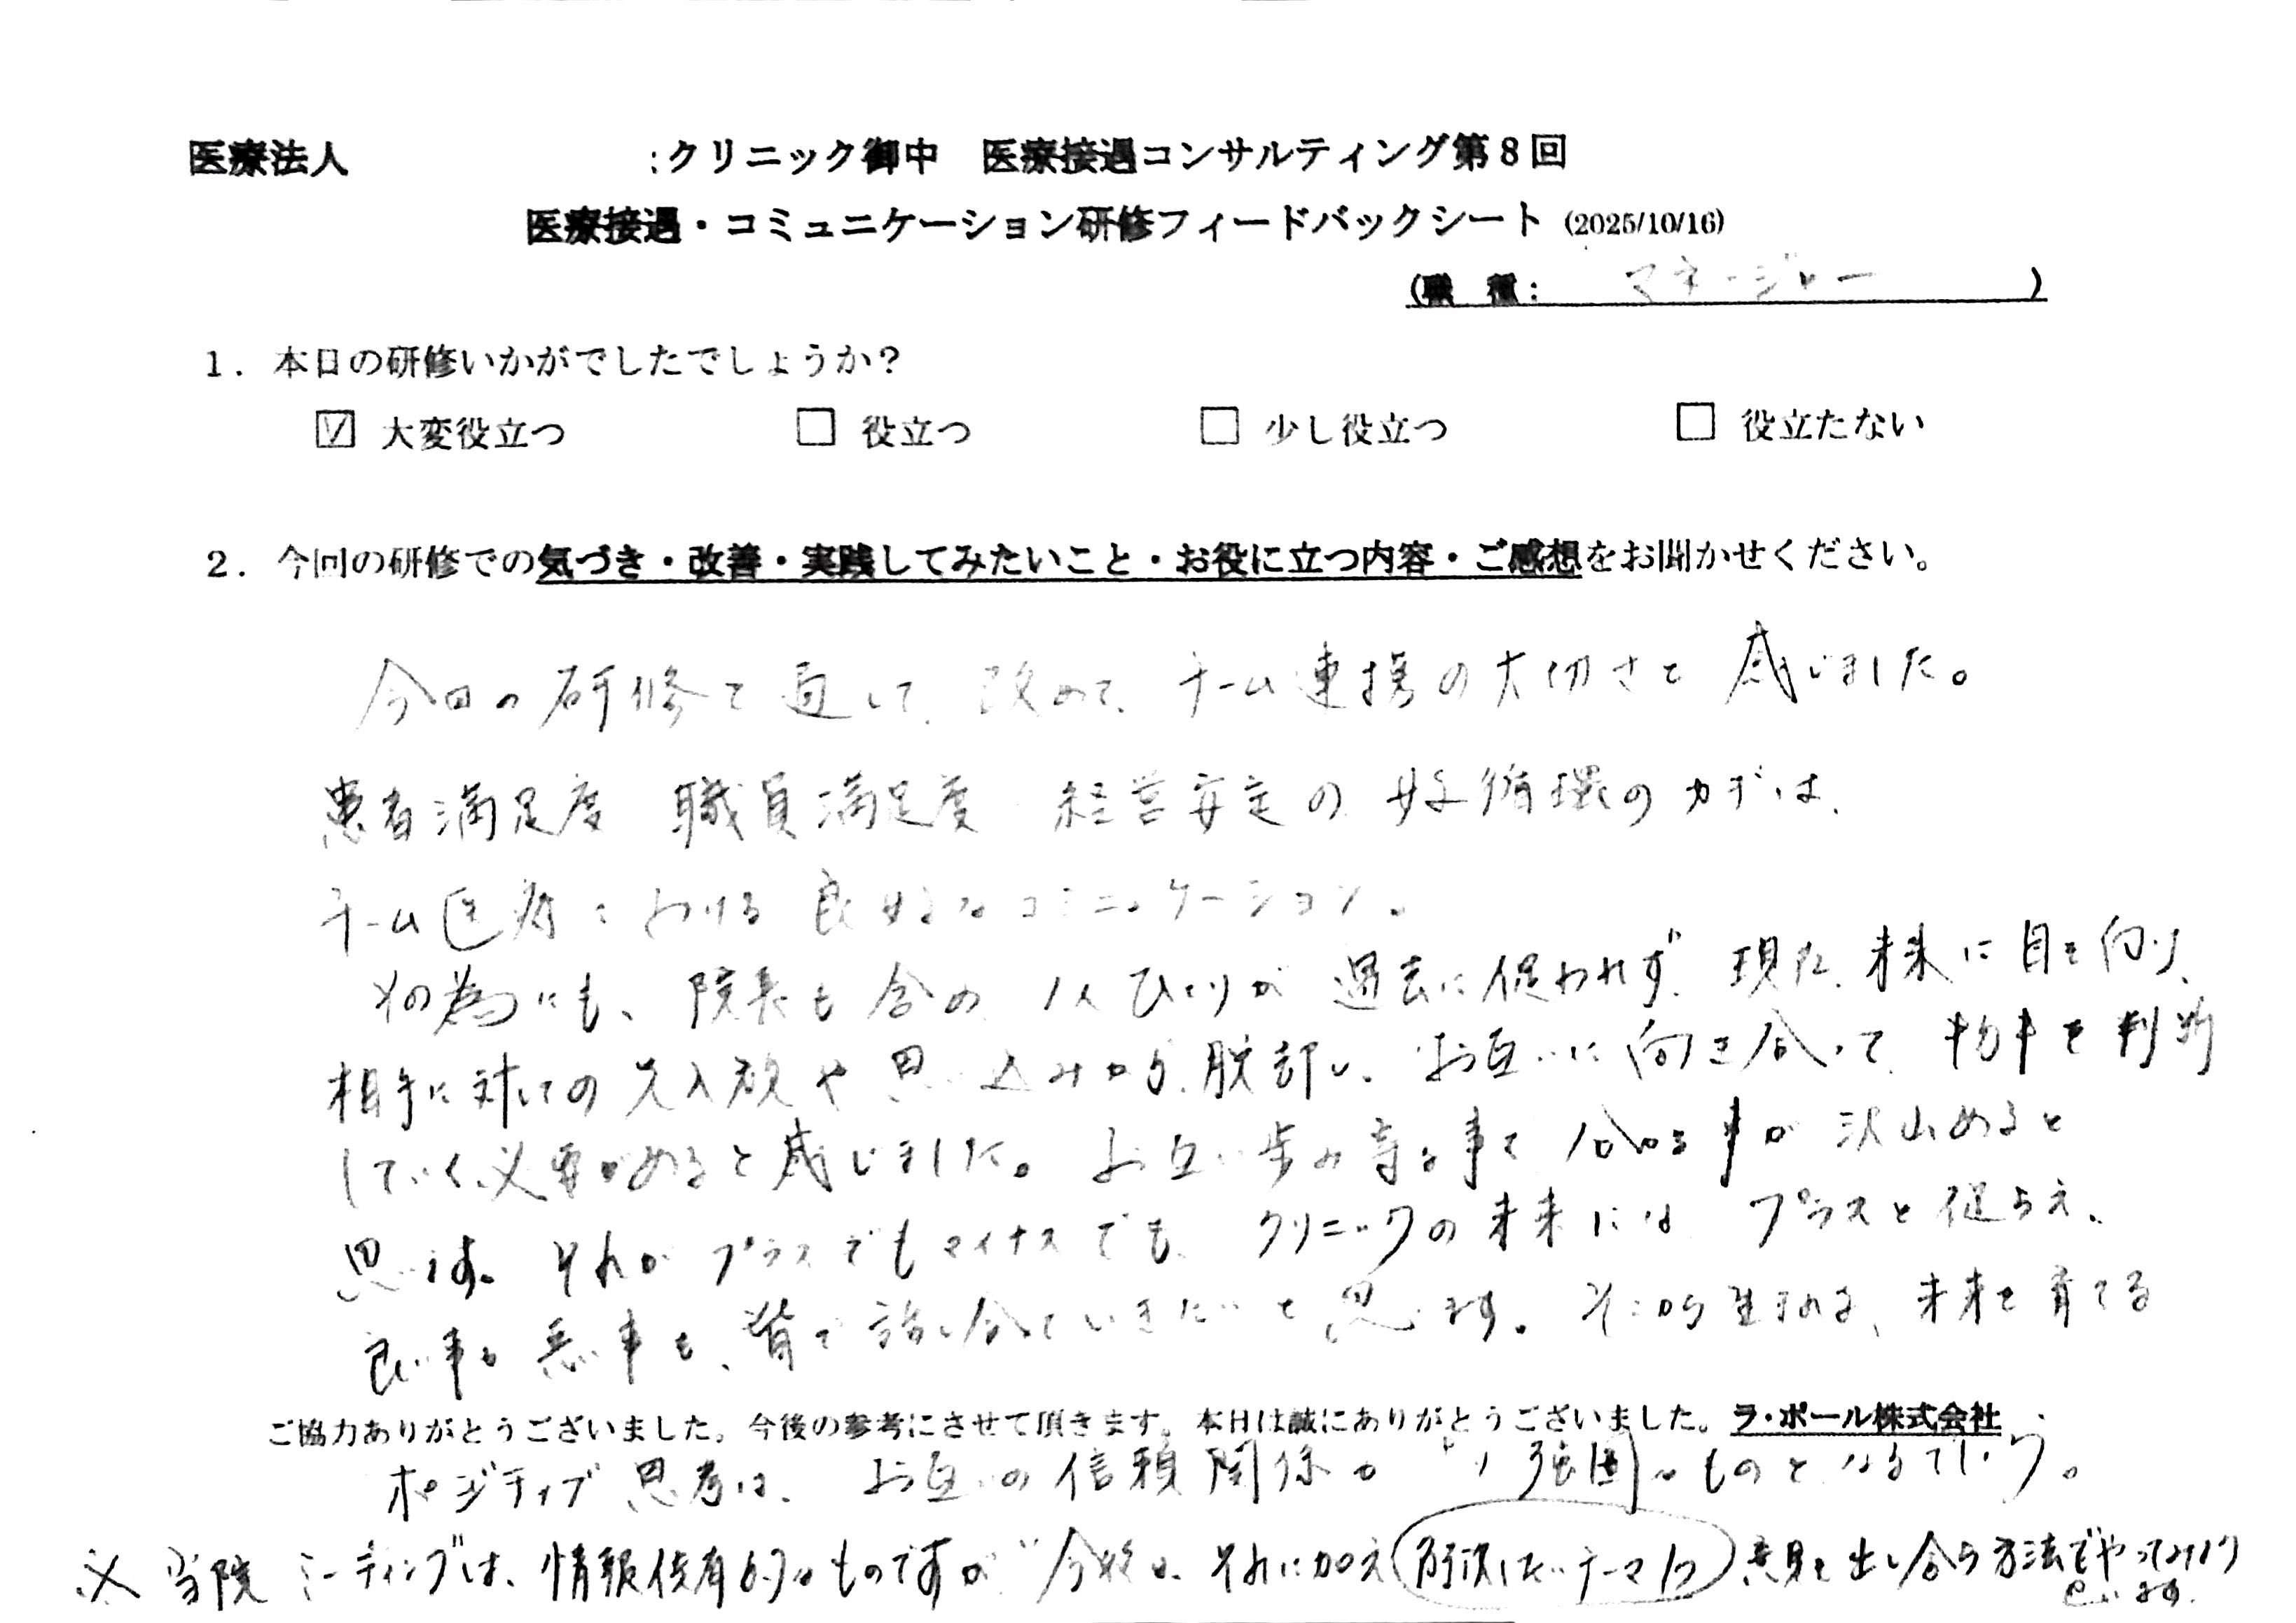 医療法人 :クリニック御中 医療接遇コンサルティング第8回
医療接遇・コミュニケーション研修フィードバックシート (2025/10/16)
(職 種: マネージャー )
1. 本日の研修いかがでしたでしょうか?
☑ 大変役立つ □ 役立つ □ 少し役立つ □ 役立たない
2. 今回の研修での気づき・改善・実践してみたいこと・お役に立つ内容・ご感想をお聞かせください。
今日の研修を通して、改めて、チーム連携の大切さを感じました。
患者満足度 職員満足度 経営安定の好循環のカギは、
チーム医療における良好なコミニュケーション。
その為にも、院長も含め 1人ひとりが 過去に促われず、現在、未来に目を向け、
相手に対しての先入観や思い込みから脱却し、お互いに向き合って、物事を判断
していく必要があると感じました。お互い歩み寄る事で分かる事が沢山あると
思います。それがプラスでもマイナスでも、クリニックの未来にはプラスと促らえ、
良い事も悪い事も、皆で話し合っていきたいと思います。そこから生まれる、未来を育てる
ご協力ありがとうございました。今後の参考にさせて頂きます。本日は誠にありがとうございました。ラ・ポール株式会社
ポジティブ思考は、お互いの信頼関係がより強固なものとなるでしょう。
※ 当院ミーティングは、情報供有的なものですが、今後は、それに加え解決したいテーマ 意見を出し合う方法でやってみようと
思います。